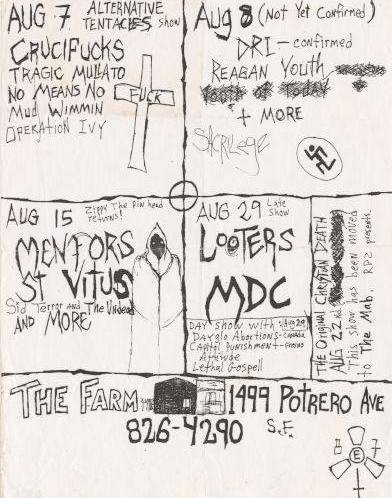 AUG 7 ALTERNATIVE
TENTACLES show
CRUCIFUCKS
TRAGIC MULLATO
NO MEANS NO
Mud Wimmin
OPERATION IVY
FUCK
AUG 8 (Not Yet Confirmed)
DRI - confirmed
REAGAN YOUTH
+ MORE
SACRILEGE
AUG 15 Zippy The Pin head
returns!
MENTORS
St VITUS
Sid Terror AND The Undead
AND MORE
AUG 29 Late
show
LOOTERS
MDC
DAY show with Aug 29
Dayglo Abortions - CANADA
Capitol Punishment - Fresno
Attitude
Lethal Gospell
THE Original CHRISTIAN DEATH
AUG 22nd
This show has been moved
to The Mab. RPZ presents.
THE FARM 1499 POTRERO AVE
826-4290 S.F.
8 7
E